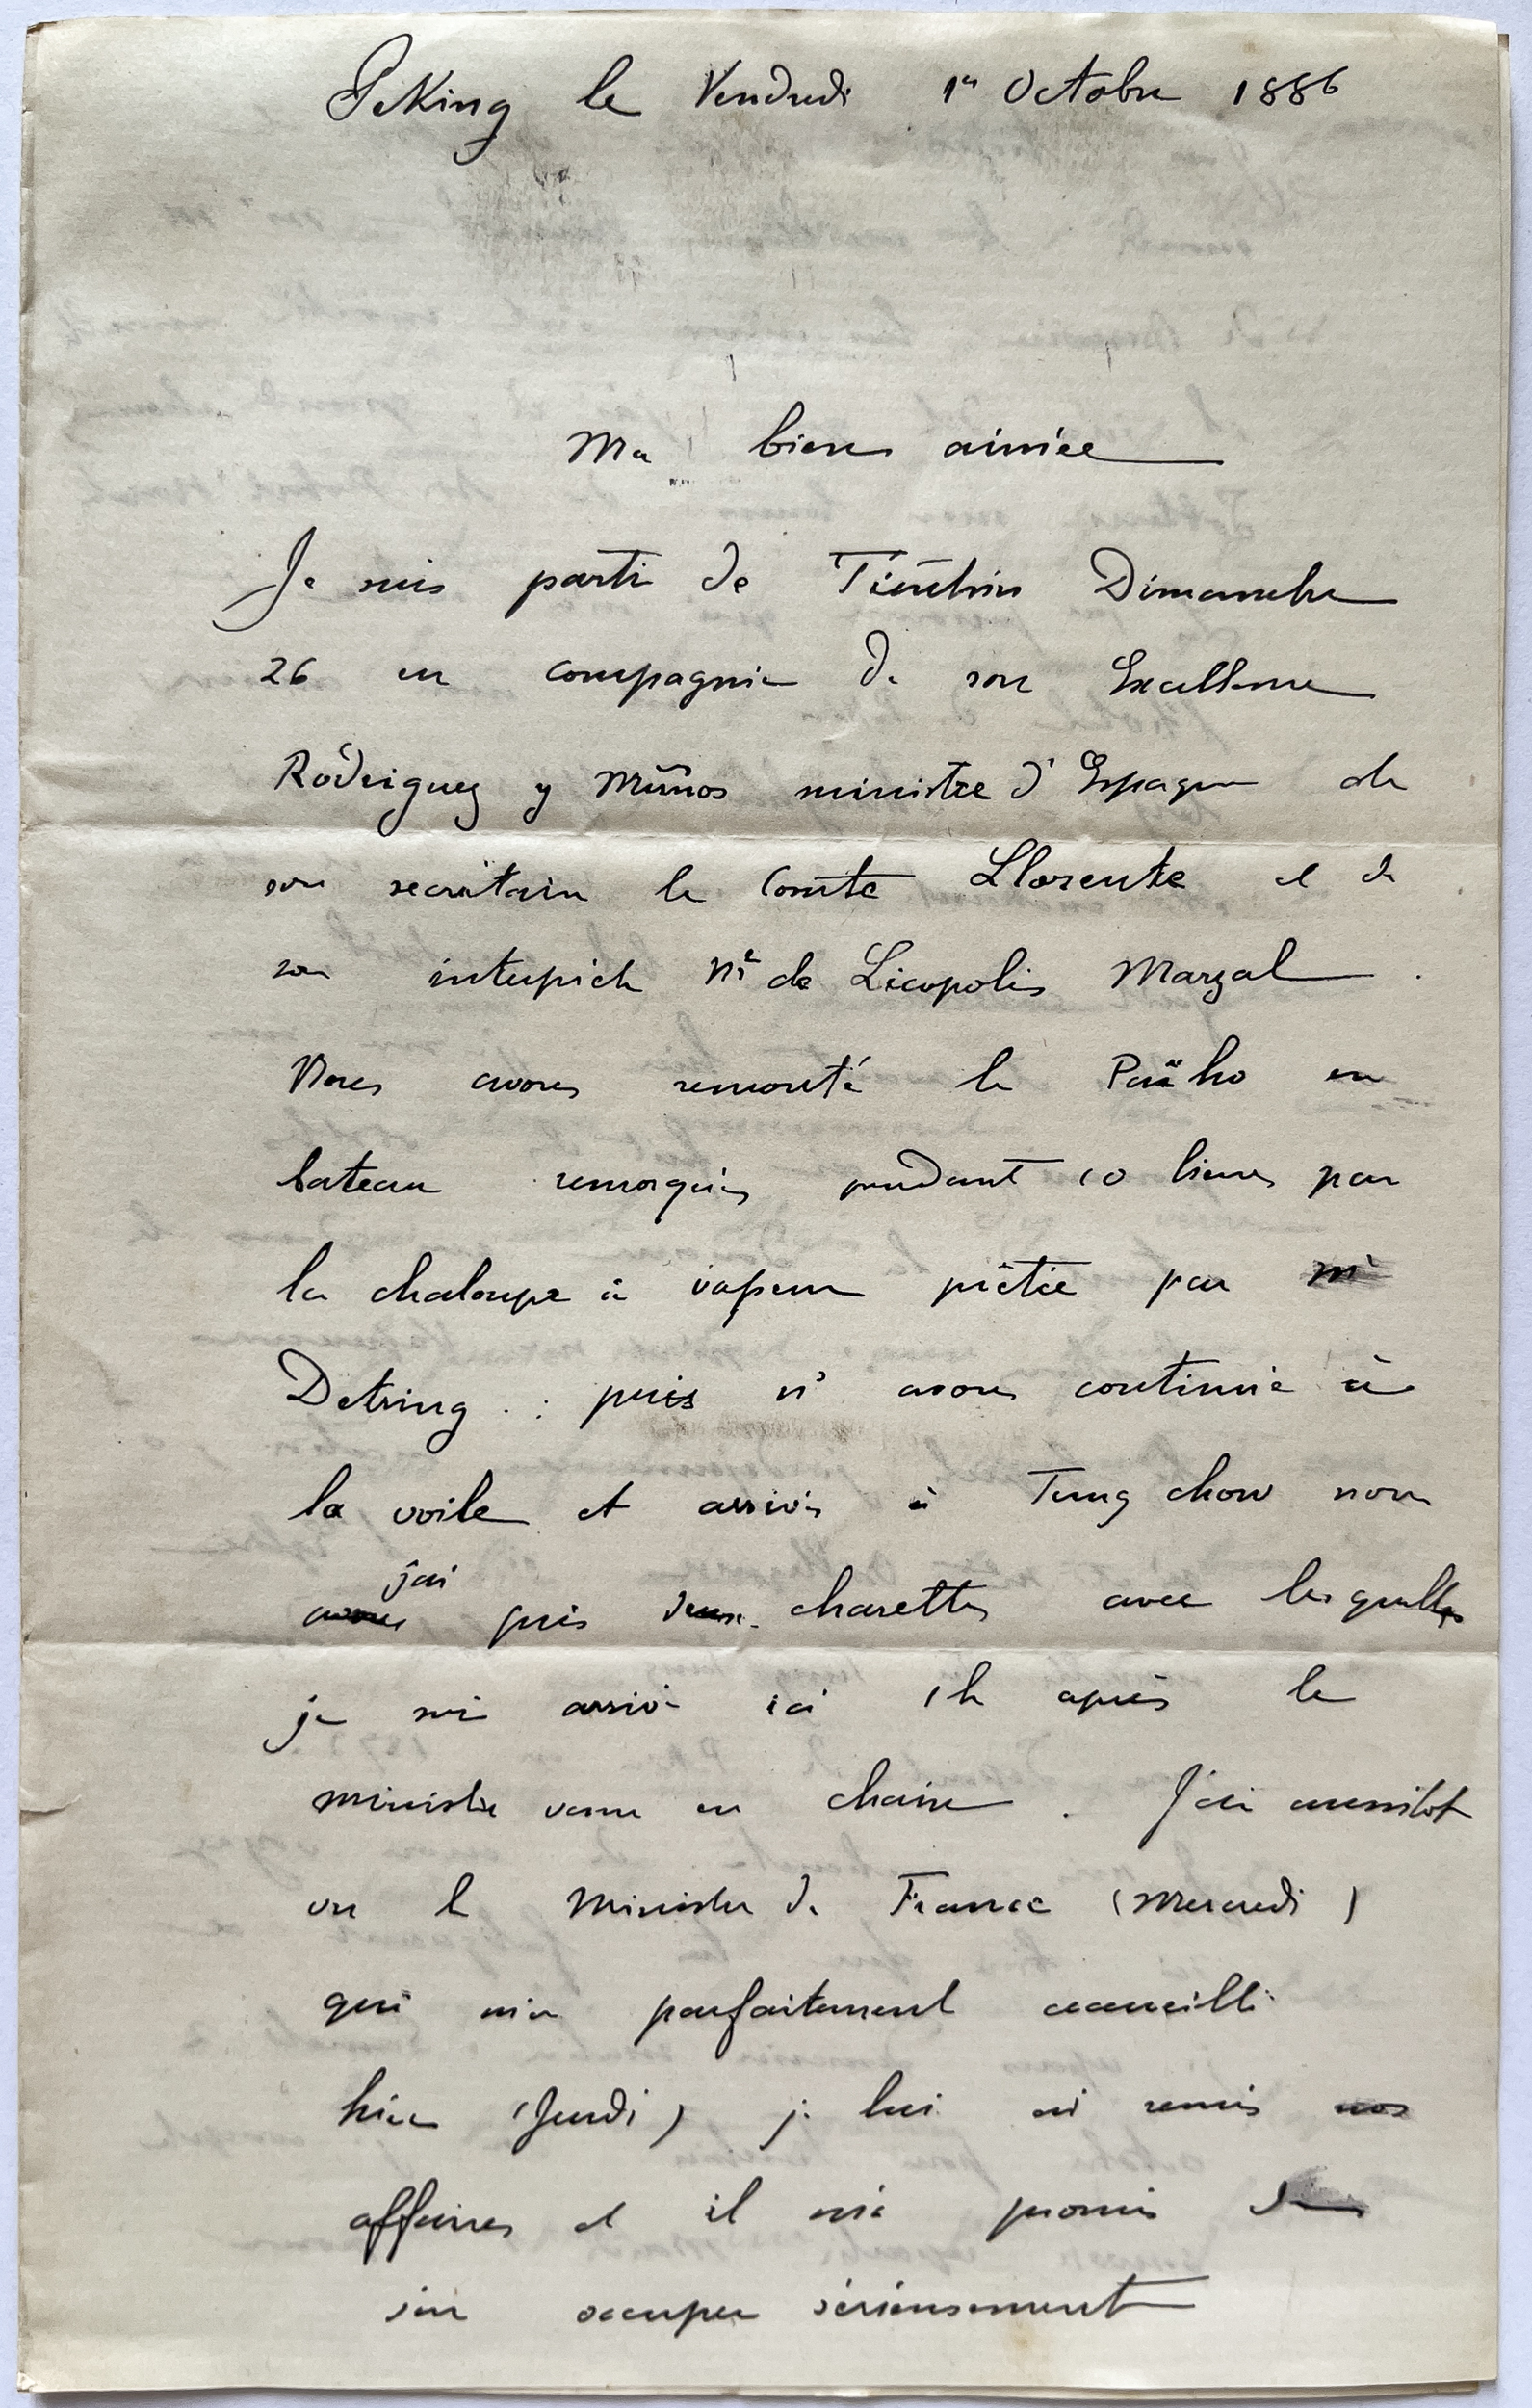 Peking le Vendredi 1er Octobre 1886
Ma bien aimée
Je suis parti de Tientsin Dimanche
26 en compagnie de son Excellence
Rodriguez y Muños ministre d'Espagne de
son secrétaire le Comte Llorente et de
son interprète Mr de Licopolis Marzal
Nous avons remonté le Paï ho en
bateau remorqués pendant 10 lieues par
la chaloupe à vapeur prêtée par Mr
Detring : puis ns avons continué à
la voile et arrivés à Tung chow nous
j'ai
avons pris deux charettes avec lesquelles
je suis arrivé ici 1h après le
ministre venu en chaise. J'ai aussitot
vu le Ministre de France (Mercredi)
qui m'a parfaitement accueilli
hier (Jeudi) je lui ai remis nos
affaires et il m'a promis de
s'en occuper sérieusement